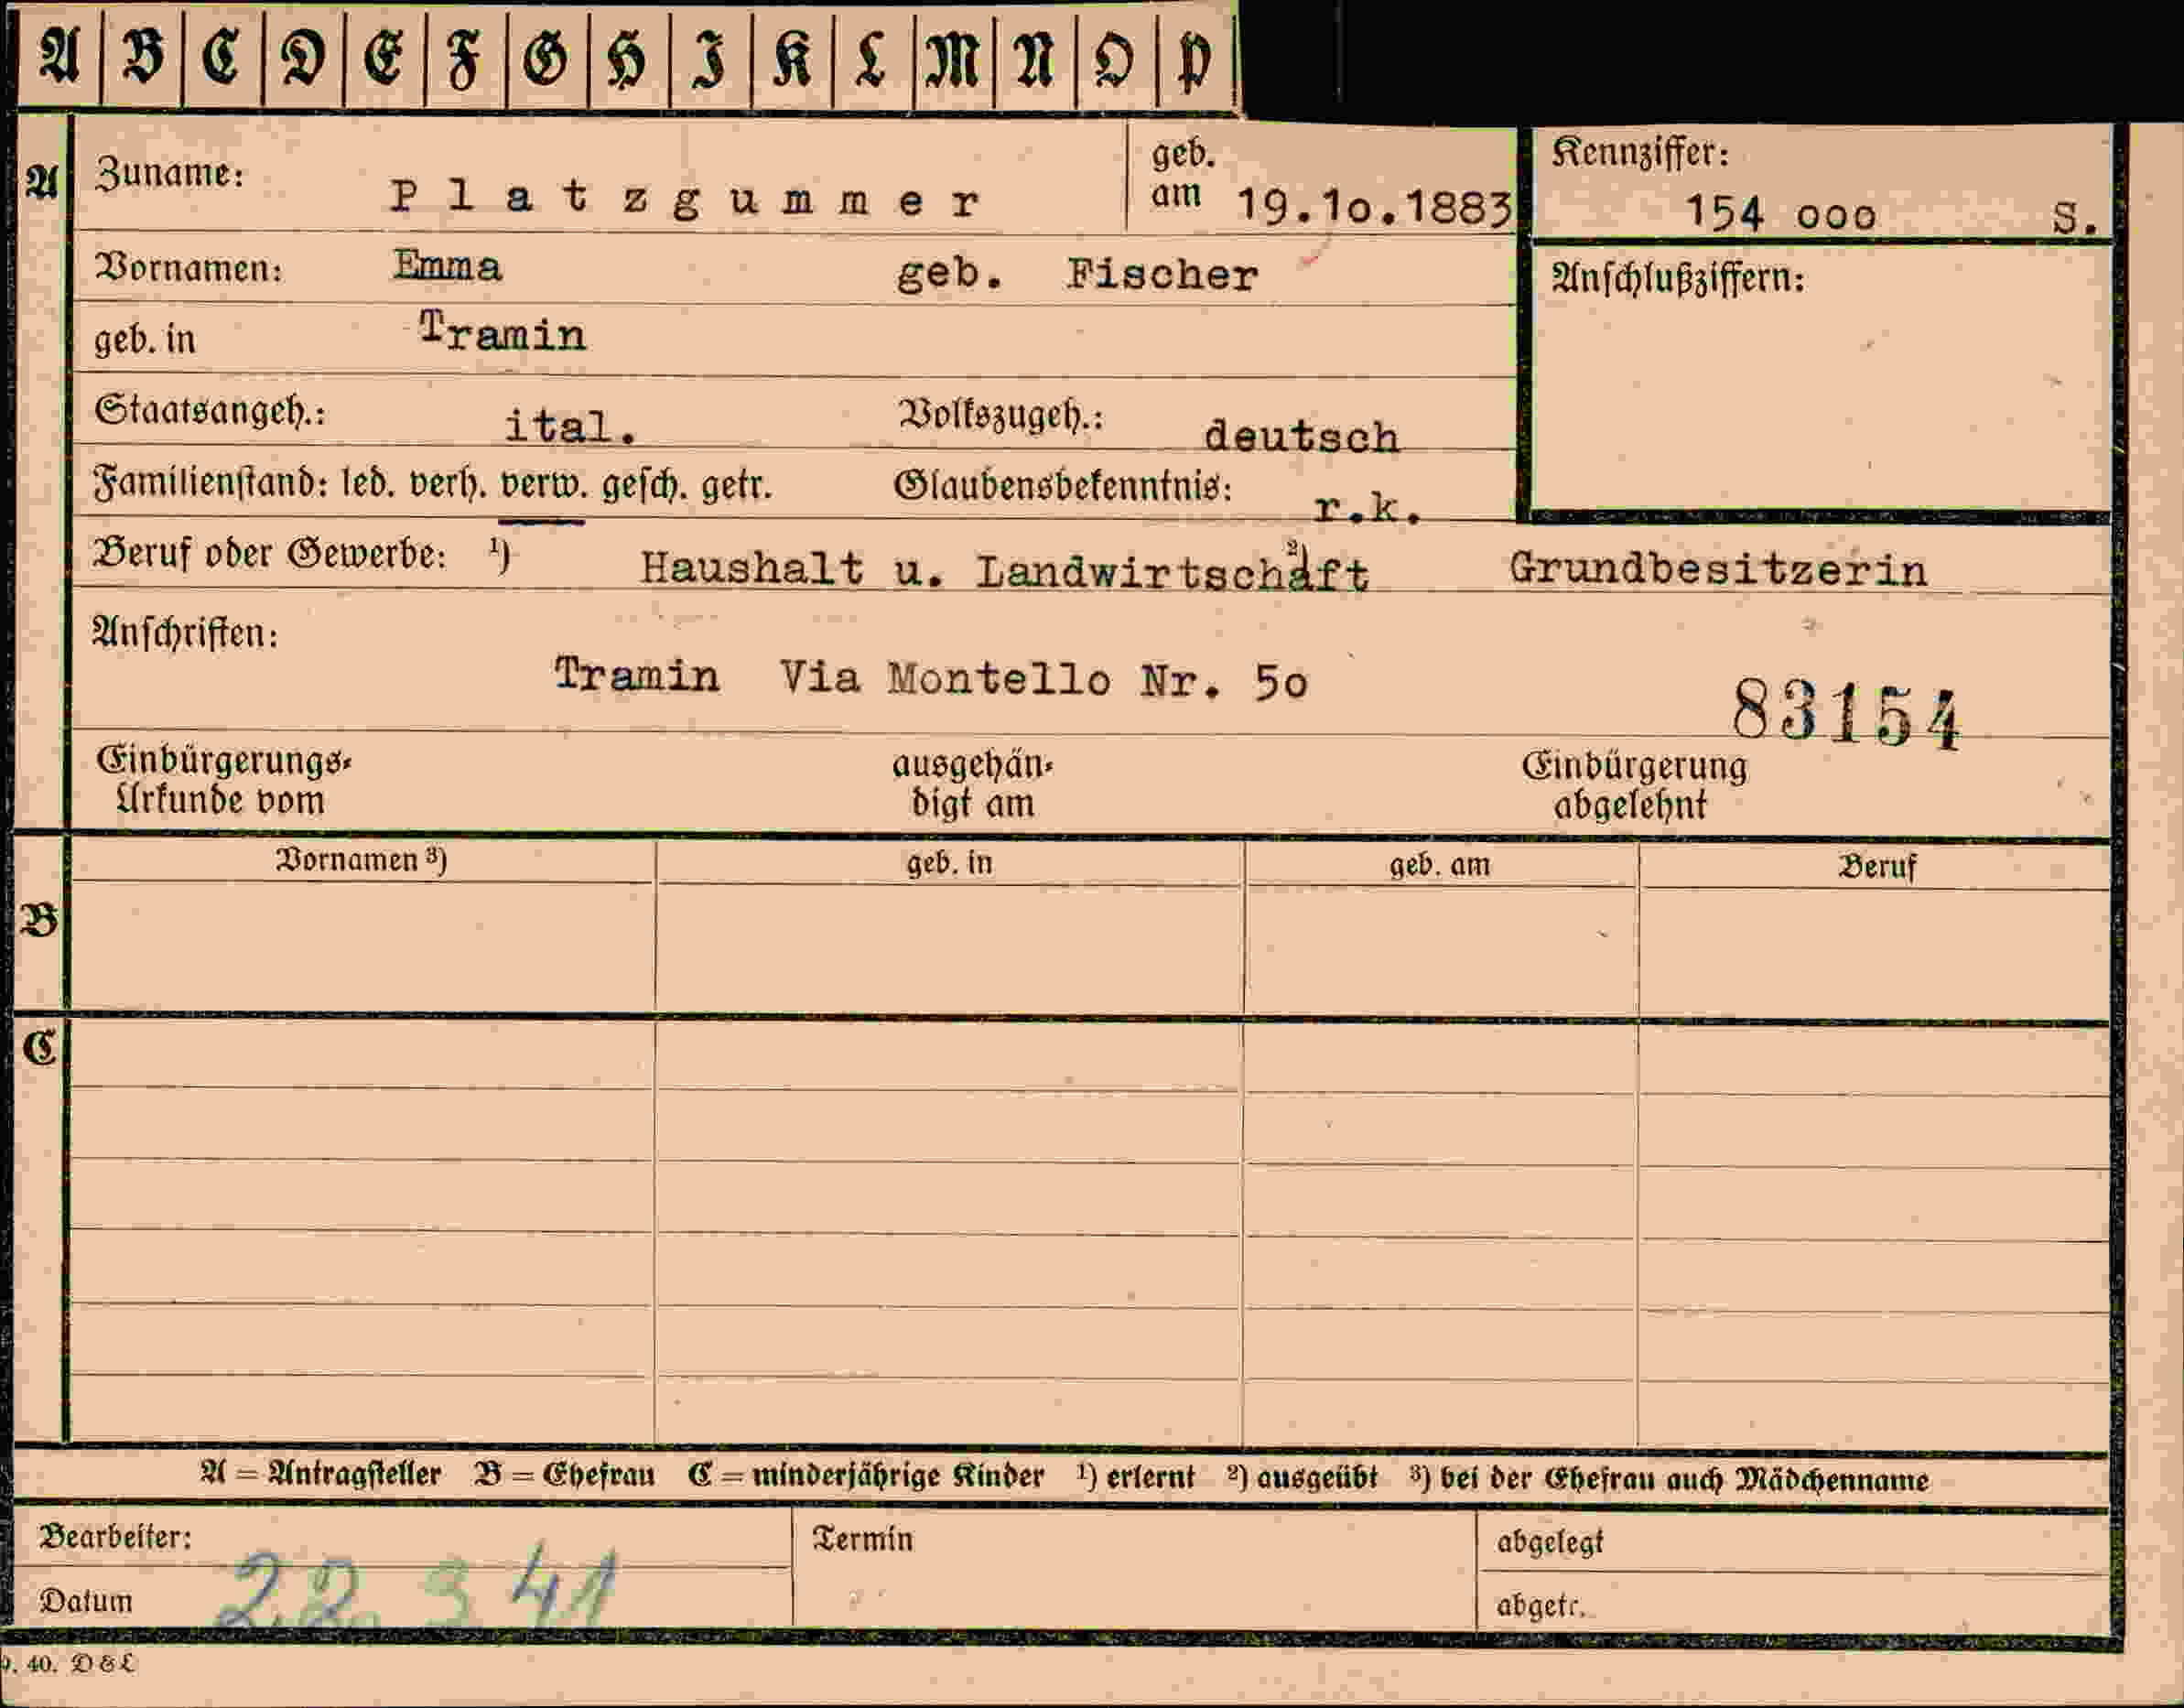 A B C D E F G H I K L M N O P
A Zuname: Platzgummer geb. am 19.10.1883 Kennziffer: 154 000 S.
Vornamen: Emma geb. Fischer Anschlußziffern:
geb. in Tramin
Staatsangeh.: ital. Volkszugeh.: deutsch
Familienstand: led. verh. verw. gesch. getr. Glaubensbekenntnis: r.k.
Beruf oder Gewerbe: ¹) Haushalt u. Landwirtschaft ²) Grundbesitzerin
Anschriften:
Tramin Via Montello Nr. 50
83154
Einbürgerungs- ausgehän- Einbürgerung
Urkunde vom digt am abgelehnt
Vornamen ³) geb. in geb. am Beruf
B
C
A = Antragsteller B = Ehefrau C = minderjährige Kinder ¹) erlernt ²) ausgeübt ³) bei der Ehefrau auch Mädchenname
Bearbeiter: Termin abgelegt
Datum 22. 3 41 abgetr.
40. D & L